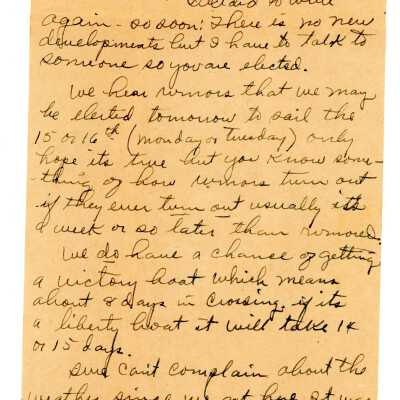 decided to write
again - so soon! There is no new
developments but I have to talk to
someone so you are elected.
We hear rumors that we may
be elected tomorrow to sail the
15 or 16th (monday or Tuesday) only
hope its true but you know some-
-thing of how rumors turn out
if they ever turn out usually its
a week or so later than rumored.
We do have a chance of getting
a victory boat which means
about 8 days in crossing, if its
a liberty boat it will take 14
or 15 days.
Sure can't complain about the
weather since we got here it was